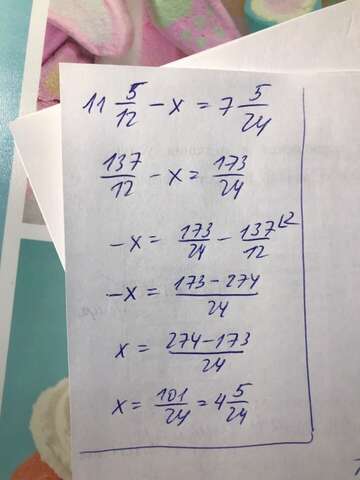 11 5/12 − x = 7 5/24
137/12 − x = 173/24
−x = 173/24 − 137/12 ^2
−x = (173−274)/24
x = (274−173)/24
x = 101/24 = 4 5/24